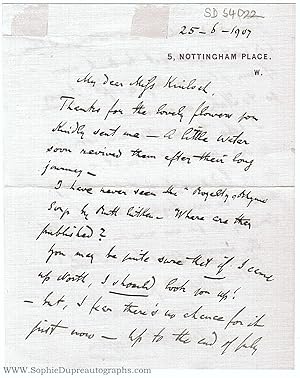 SD 54022
25-6-1907
5, NOTTINGHAM PLACE.
W.
My dear Miss Kinloch.
Thanks for the lovely flowers you
kindly sent me — A little water
soon revived them after their long
journey —
I have never seen the "Royalty
Songs by Ruth — Where are they
published?
You may be quite sure that if I came
up North, I should look you up!
— but, I fear there's no chance for it
just now — up to the end of July
www.SophieDupreautographs.com